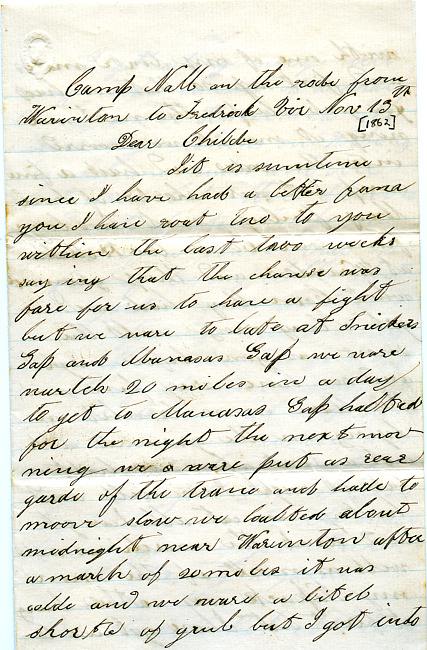 Camp Nall on the rode from
Warinton to Fredrick Vir Nov 13th
[1862]
Dear Childe
Tit is sumtime
since I have had a letter frama
you I have roat two to you
within the last two weeks
saying that the chanse was
fare for us to have a fight
but we ware to late at Snickers
Gap and Manasas Gap we ware
martch 20 miles in a day
to get to Manasas Gap halted
for the night the next mor
neng we ware put as rear
garde of the trane and hade to
moove slow we haulted about
midnight near Warinton after
a march of 20 miles it was
colde and we ware a litel
shorte of grub but I got into